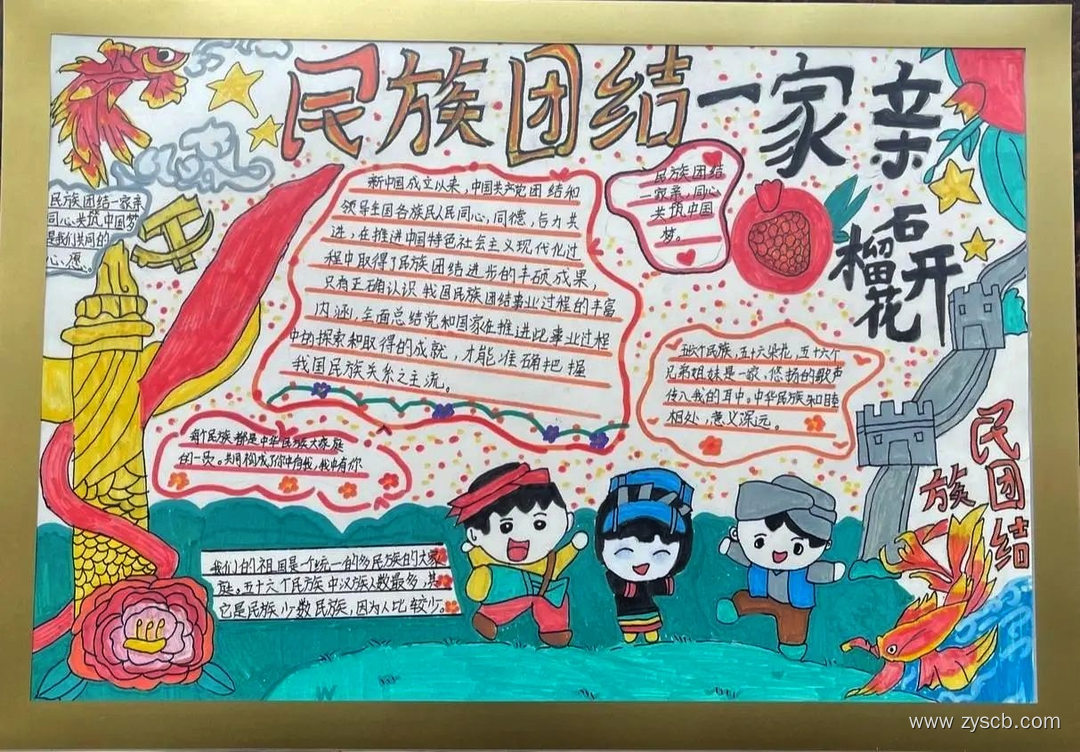 民族团结一家亲
石榴花开
民族团结一家亲
同心共筑中国梦
是我们共同的
心愿。
新中国成立以来，中国共产党团结和
领导全国各族民人民同心，同德，与力共
进，在推进中国特色社会主义现代化过
程中取得了民族团结进步的丰硕成果，
只有正确认识我国民族团结事业过程的丰富
内涵，全面总结党和国家在推进此事业过程
中的探索和取得的成就，才能准确把握
我国民族关系之主流。
民族团结
家亲，同心
共筑中国
梦。
五十六个民族，五十六朵花，五十六个
兄弟姐妹是一家，悠扬的歌声
传入我的耳中。中华民族和睦
相处，意义深远。
每个民族都是中华民族大家庭
的一员。共同构成了你中有我，我中有你
民族团结
我们的祖国是个统一的多民族的大家
庭。五十六个民族中汉族人数最多，其
它是民族少数民族，因为人比较少。
www.zyscb.com